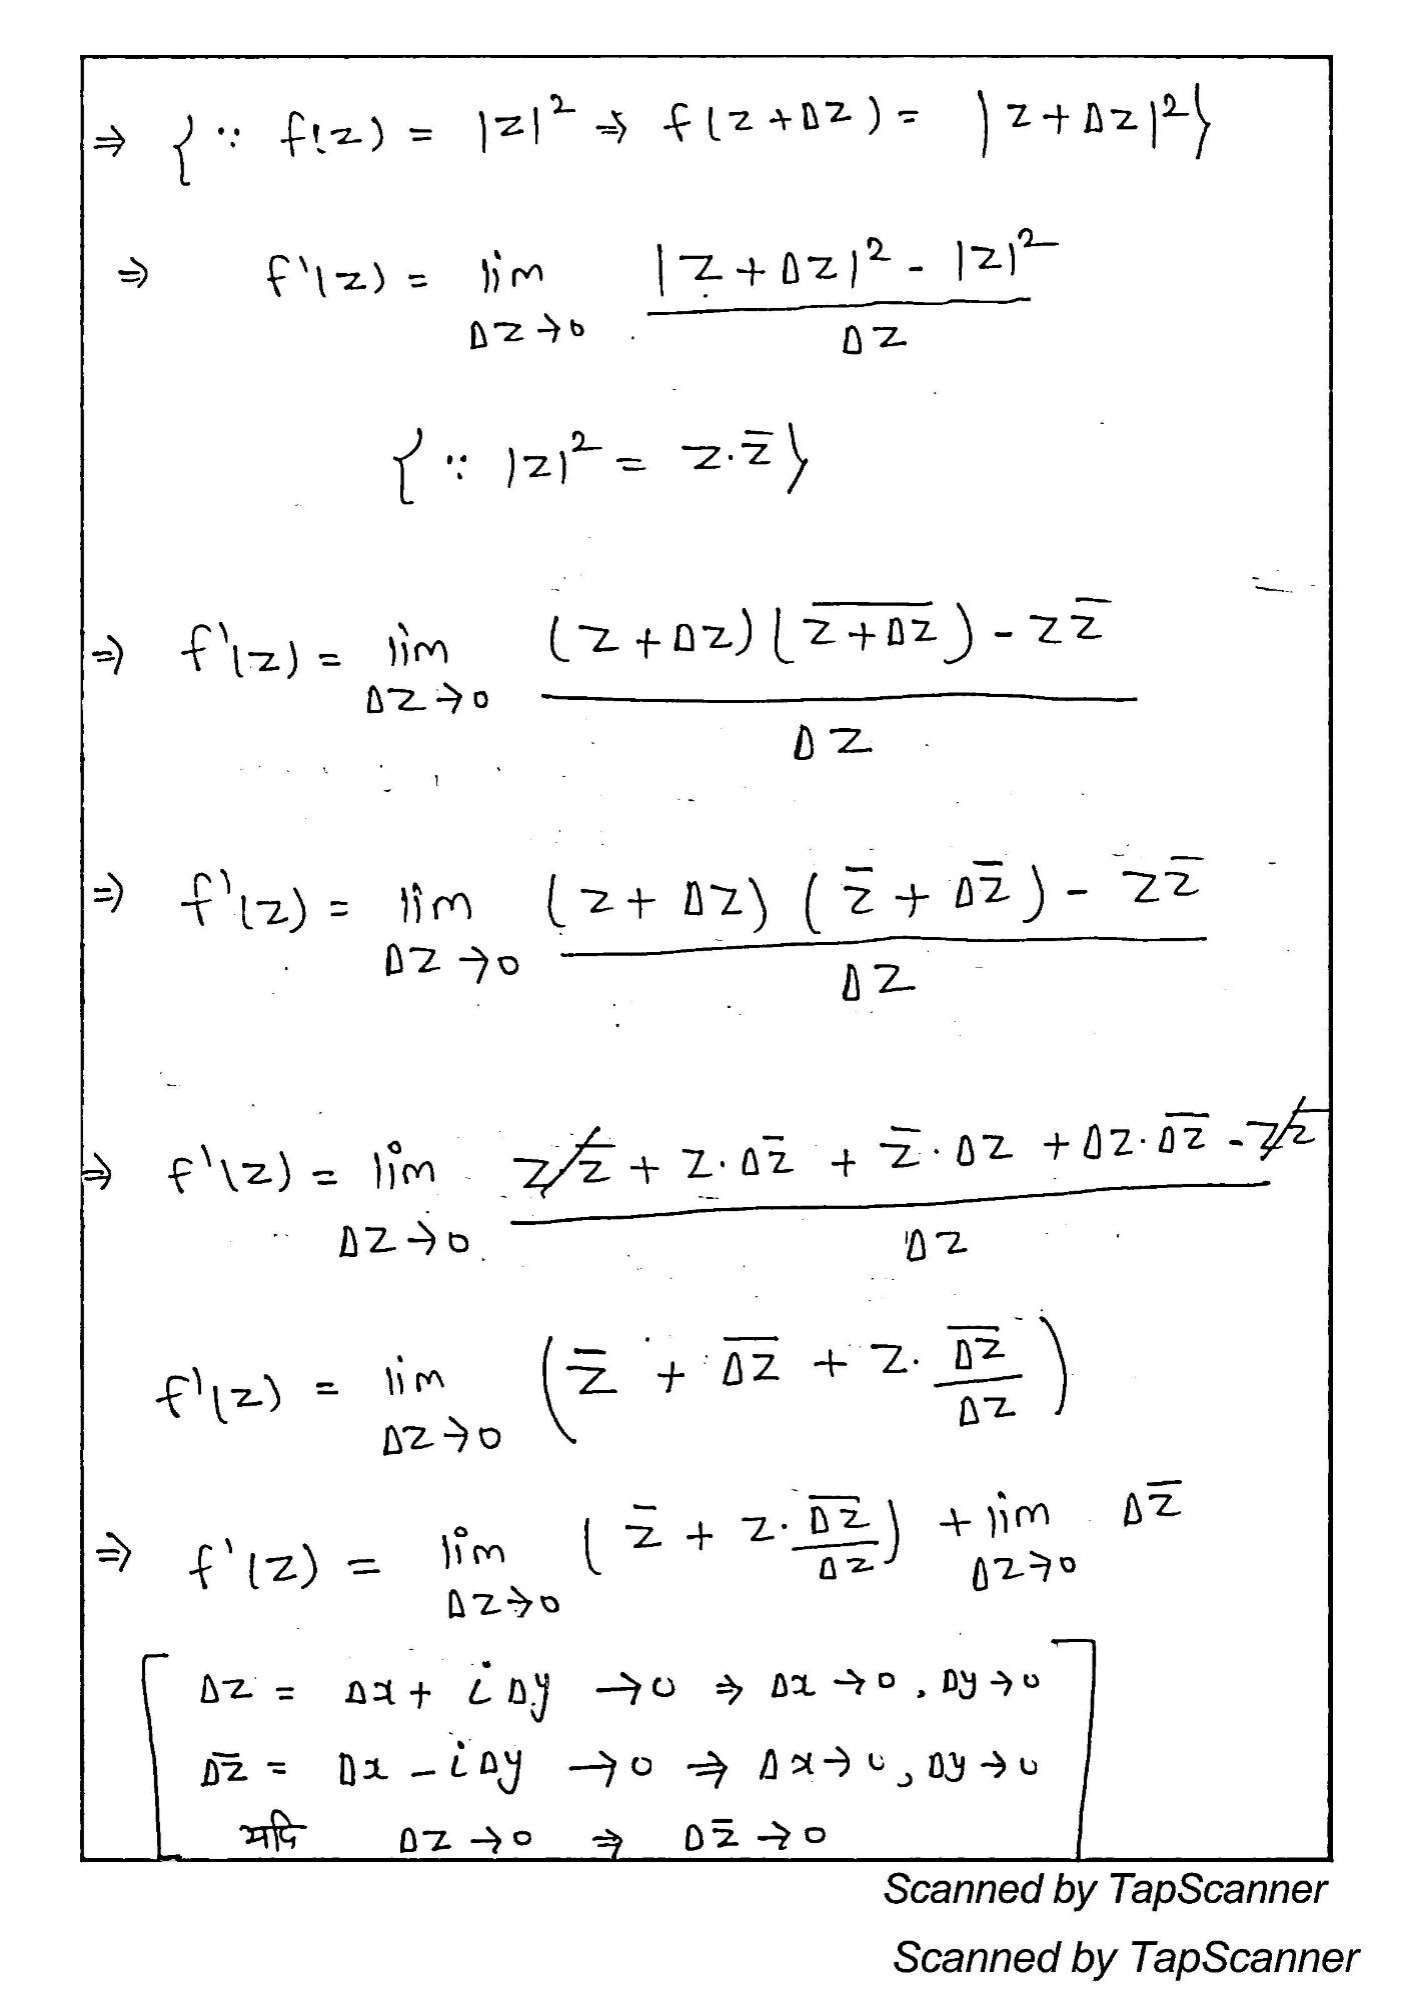 ⇒ { ∵ f(z) = |z|² ⇒ f(z+Δz) = |z+Δz|² }
⇒ f'(z) = lim_{Δz→0} (|z+Δz|² - |z|²) / Δz
{ ∵ |z|² = z·z̄ }
⇒ f'(z) = lim_{Δz→0} ((z+Δz)(\overline{z+Δz}) - zz̄) / Δz
⇒ f'(z) = lim_{Δz→0} ((z+Δz)(z̄+Δz̄) - zz̄) / Δz
⇒ f'(z) = lim_{Δz→0} (zz̄ + z·Δz̄ + z̄·Δz + Δz·\overline{Δz} - zz̄) / Δz
f'(z) = lim_{Δz→0} (z̄ + \overline{Δz} + z·\overline{Δz}/Δz)
⇒ f'(z) = lim_{Δz→0} (z̄ + z·\overline{Δz}/Δz) + lim_{Δz→0} Δz̄
Δz = Δx + iΔy → 0 ⇒ Δx → 0, Δy → 0
Δz̄ = Δx - iΔy → 0 ⇒ Δx → 0, Δy → 0
यदि Δz → 0 ⇒ Δz̄ → 0
Scanned by TapScanner
Scanned by TapScanner